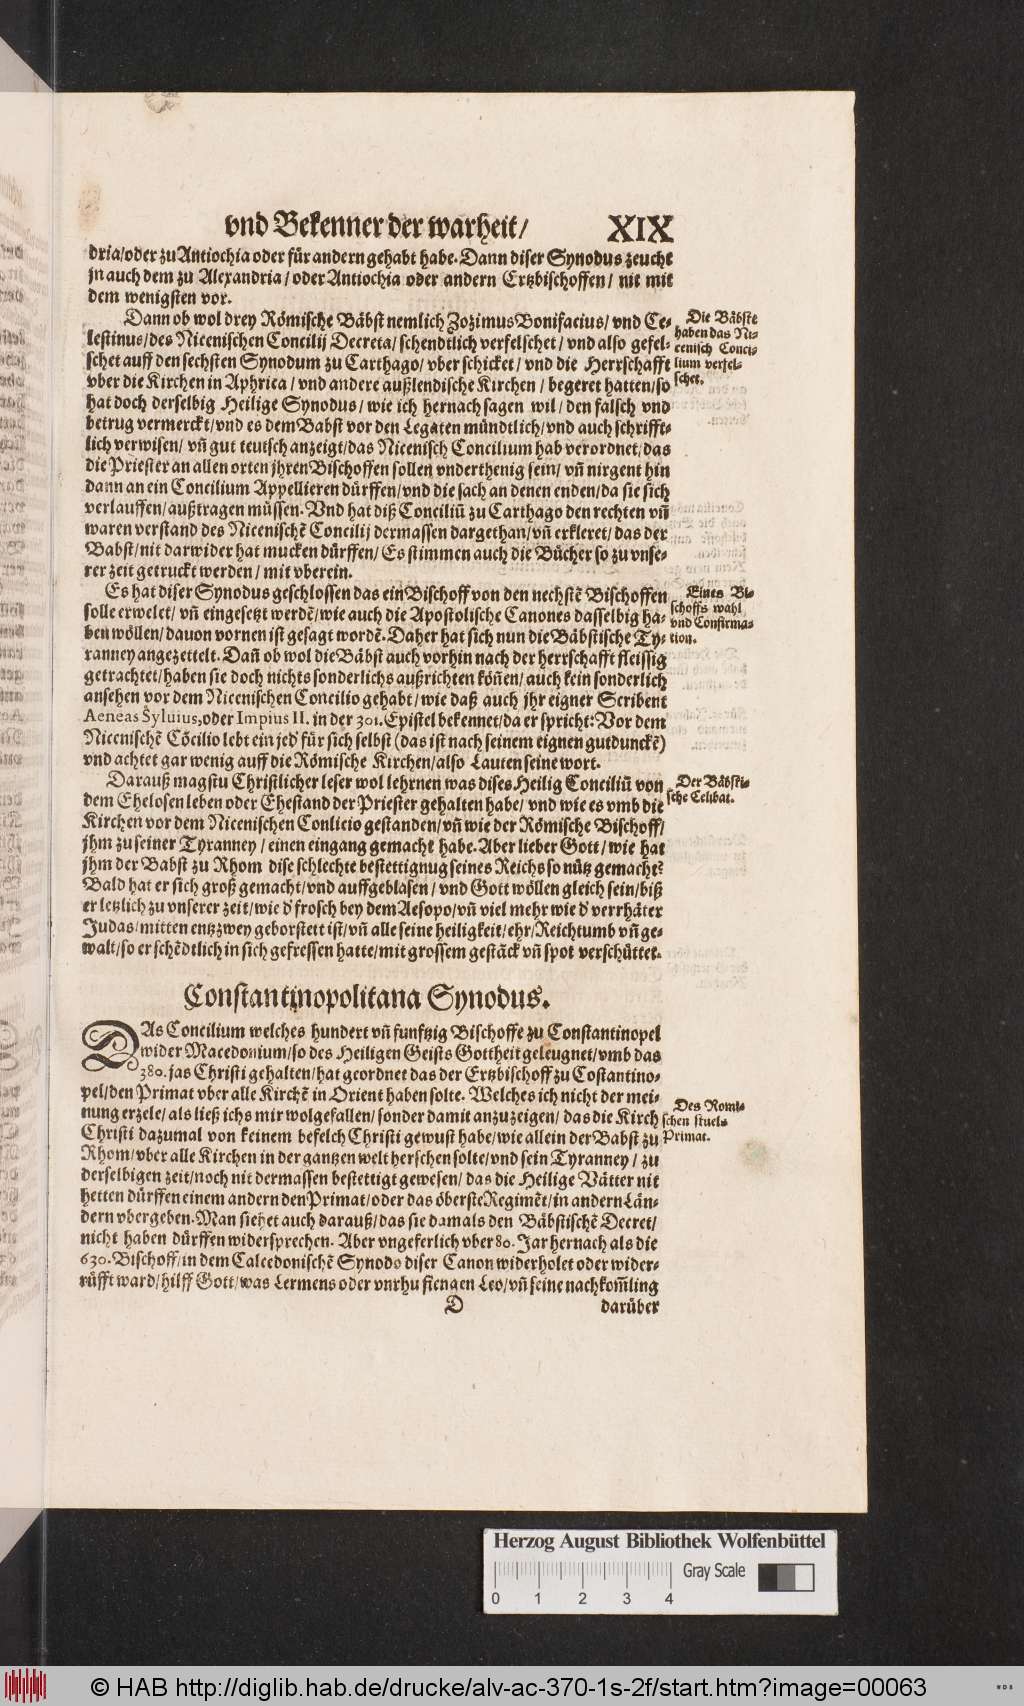 vnd Bekenner der warheit/ XIX
dria/oder zu Antiochia oder für andern gehabt habe. Dann diser Synodus zeucht
jn auch dem zu Alexandria/oder Antiochia oder andern Ertzbischoffen/ nit mit
dem wenigsten vor.
Dann ob wol drey Römische Bäbst nemlich Zozimus Bonifacius/ vnd Ce-
lestinus/des Nicenischen Concilij Decreta/ schendtlich verfelschet/ vnd also gefel-
schet auff den sechsten Synodum zu Carthago/ vber schicket/ vnd die Herrschafft
vber die Kirchen in Aphrica/ vnd andere außlendische Kirchen/ begeret hatten/so
hat doch derselbig Heilige Synodus/ wie ich hernach sagen wil/ den falsch vnd
betrug vermerckt/vnd es dem Babst vor den Legaten mündtlich/vnd auch schrifft-
lich verwisen/ vñ gut teutsch anzeigt/das Nicenisch Concilium hab verordnet/das
die Priester an allen orten jhren Bischoffen sollen vnderthenig sein/ vñ nirgent hin
dann an ein Concilium Appellieren dürffen/vnd die sach an denen enden/da sie sich
verlauffen/außtragen müssen. Vnd hat diß Conciliū zu Carthago den rechten vñ
waren verstand des Nicenischē Concilij dermassen dargethan/vñ erkleret/das der
Babst/nit darwider hat mucken dürffen/ Es stimmen auch die Bücher so zu vnse-
rer zeit getruckt werden/ mit vberein.
Die Bäbste
haben das Ni-
cenisch Conci-
lium verfel-
schet.
Es hat diser Synodus geschlossen das ein Bischoff von den nechstē Bischoffen
solle erwelet/ vñ eingesetzt werdē/wie auch die Apostolische Canones dasselbig ha-
ben wöllen/dauon vornen ist gesagt wordē. Daher hat sich nun die Bäbstische Ty-
ranney angezettelt. Dañ ob wol die Bäbst auch vorhin nach der herrschafft fleissig
getrachtet/haben sie doch nichts sonderlichs außrichten köñen/auch kein sonderlich
ansehen vor dem Nicenischen Concilio gehabt/ wie daß auch jhr eigner Scribent
Aeneas Syluius, oder Impius II. in der 301. Epistel bekennet/da er spricht: Vor dem
Nicenischē Cōcilio lebt ein jed' für sich selbst (das ist nach seinem eignen gutdunckē)
vnd achtet gar wenig auff die Römische Kirchen/also Lauten seine wort.
Eines Bi-
schoffs wahl
vnd Confirma-
tion.
Darauß magstu Christlicher leser wol lehrnen was dises Heilig Conciliū von
dem Ehelosen leben oder Ehestand der Priester gehalten habe/ vnd wie es vmb die
Kirchen vor dem Nicenischen Conlicio gestanden/vñ wie der Römische Bischoff/
jhm zu seiner Tyranney/ einen eingang gemacht habe. Aber lieber Gott/ wie hat
jhm der Babst zu Rhom dise schlechte bestettignug seines Reichs so nütz gemacht?
Bald hat er sich groß gemacht/vnd auffgeblasen/ vnd Gott wöllen gleich sein/biß
er letzlich zu vnserer zeit/wie d' frosch bey dem Aesopo/vñ viel mehr wie d' verrhäter
Judas/mitten entzzwey geborstett ist/vñ alle seine heiligkeit/ehr/Reichtumb vñ ge-
walt/so er schēdtlich in sich gefressen hatte/mit grossem gestäck vñ spot verschüttet.
Der Bäbsti-
sche Celibat.
Constantinopolitana Synodus.
DAs Concilium welches hundert vñ funfftzig Bischoffe zu Constantinopel
wider Macedonium/so des Heiligen Geists Gottheit geleugnet/vmb das
380. jas Christi gehalten/hat geordnet das der Ertzbischoff zu Costantino-
pel/den Primat vber alle Kirchē in Orient haben solte. Welches ich nicht der mei-
nung erzele/als ließ ichs mir wolgefallen/sonder damit anzuzeigen/das die Kirch
Christi dazumal von keinem befelch Christi gewust habe/wie allein der Babst zu
Rhom/vber alle Kirchen in der gantzen welt herschen solte/vnd sein Tyranney/ zu
derselbigen zeit/noch nit dermassen bestettigt gewesen/das die Heilige Vätter nit
hetten dürffen einem andern den Primat/oder das öberste Regimēt/in andern Län-
dern vbergeben. Man siehet auch darauß/das sie damals den Bäbstischē Decret/
nicht haben dürffen widersprechen. Aber vngeferlich vber 80. Jar hernach als die
630. Bischoff/in dem Calcedonischē Synodo diser Canon widerholet oder wider-
rüfft ward/hilff Gott/was Lermens oder vnrhu fiengen Leo/vñ seine nachkom̄ling
Des Romi-
schen stuels
Primat.
D darüber
Herzog August Bibliothek Wolfenbüttel
Gray Scale
0 1 2 3 4
© HAB http://diglib.hab.de/drucke/alv-ac-370-1s-2f/start.htm?image=00063